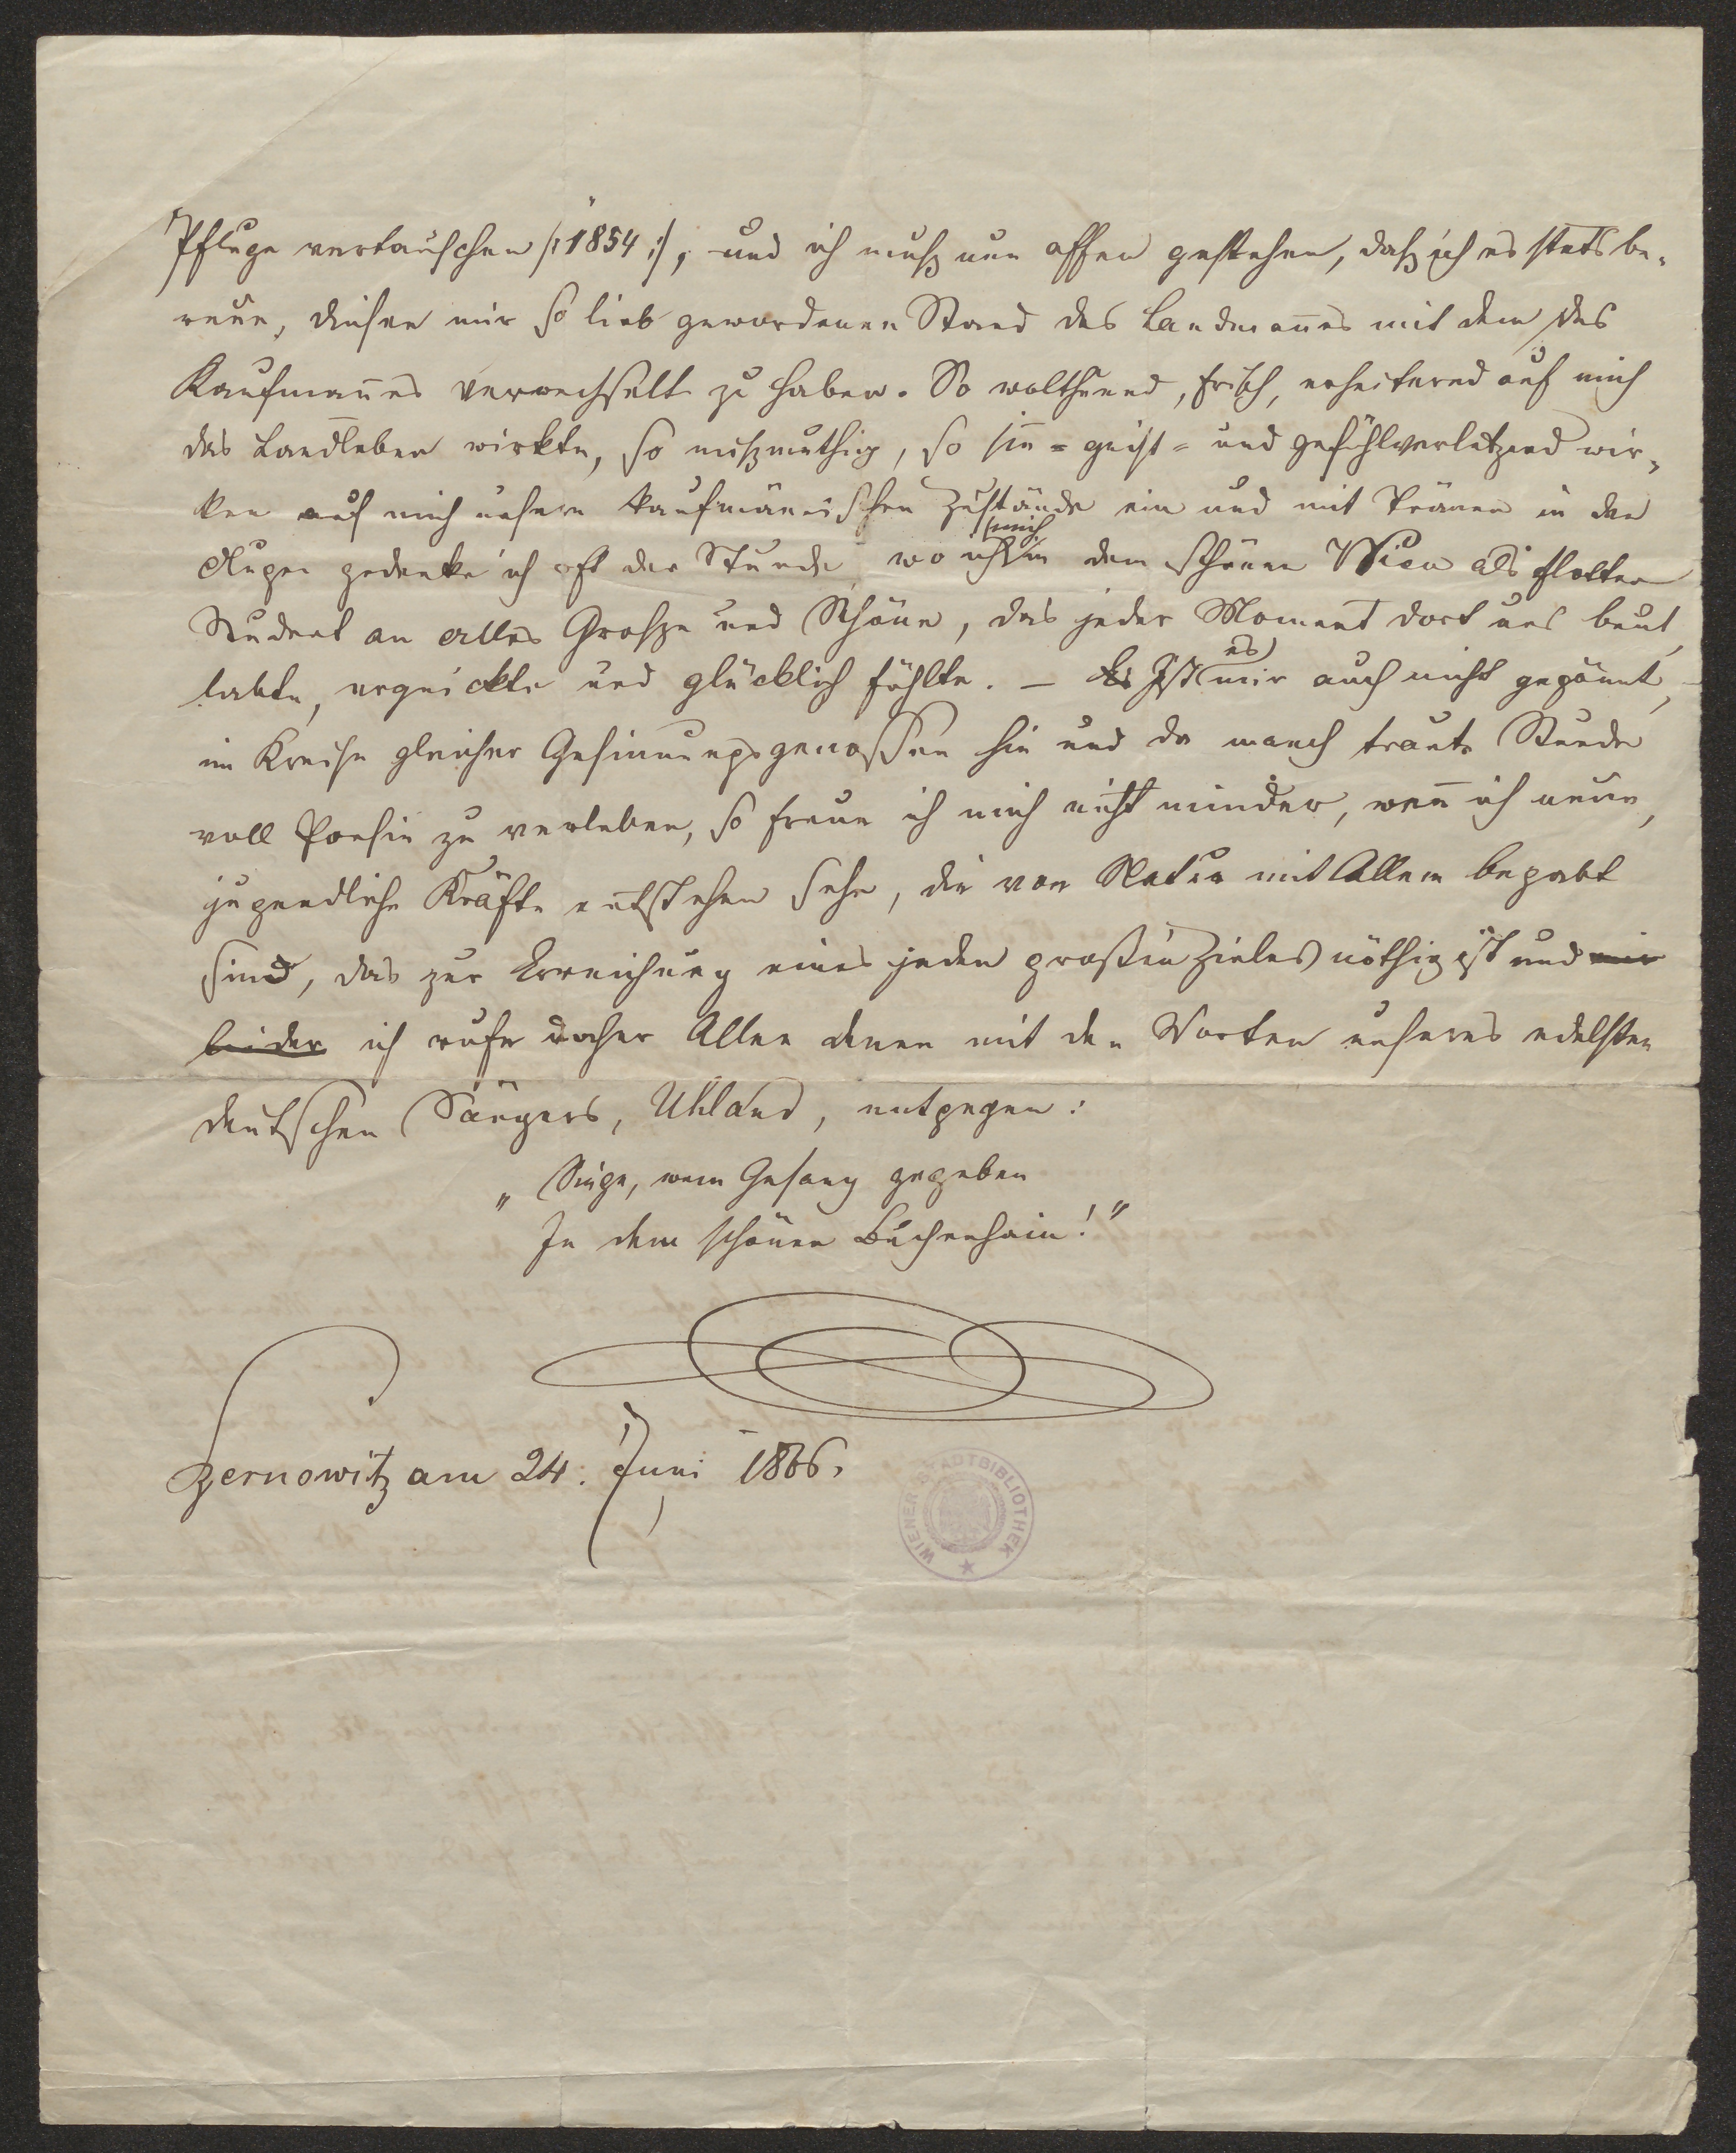 Pfluge vertauschen /:1854:/, und ich muß nun offen gestehen, daß ich es stets be-
reue, diesen mir so lieb gewordenen Stand des Landmannes mit dem des
Kaufmannes verwechselt zu haben. So wolthuend, frisch, erheiternd auf mich
das Landleben wirkte, so mißmuthig, so sinn- geist- und gefühlverletzend wir-
ken auf mich unsere kaufmännischen Zustände ein und mit Tränen in den
Augen gedenke ich oft der Stunde, wo ich mich in dem schönen Wien als flotter
Student an alles Große und Schöne, das jeder Moment dort uns beut,
labte, erquickte und glücklich fühlte. – Es Ist es mir auch nicht gegönnt,
im Kreise gleicher Gesinnungsgenossen hie und da manch traute Stunde
voll Poesie zu verleben, so freue ich mich nicht minder, wenn ich neue,
jugendliche Kräfte entstehen sehe, die von Natur mit Allem begabt
sind, das zur Erreichung eines jeden großen Zieles nöthig ist und mir
leider ich rufe daher Allen denen mit den Worten unseres edelsten
deutschen Sängers, Uhland, entgegen:
„Singe, wem Gesang gegeben
In dem schönen Buchenhain!"
Czernowitz am 24. Juni 1866.
WIENER STADTBIBLIOTHEK